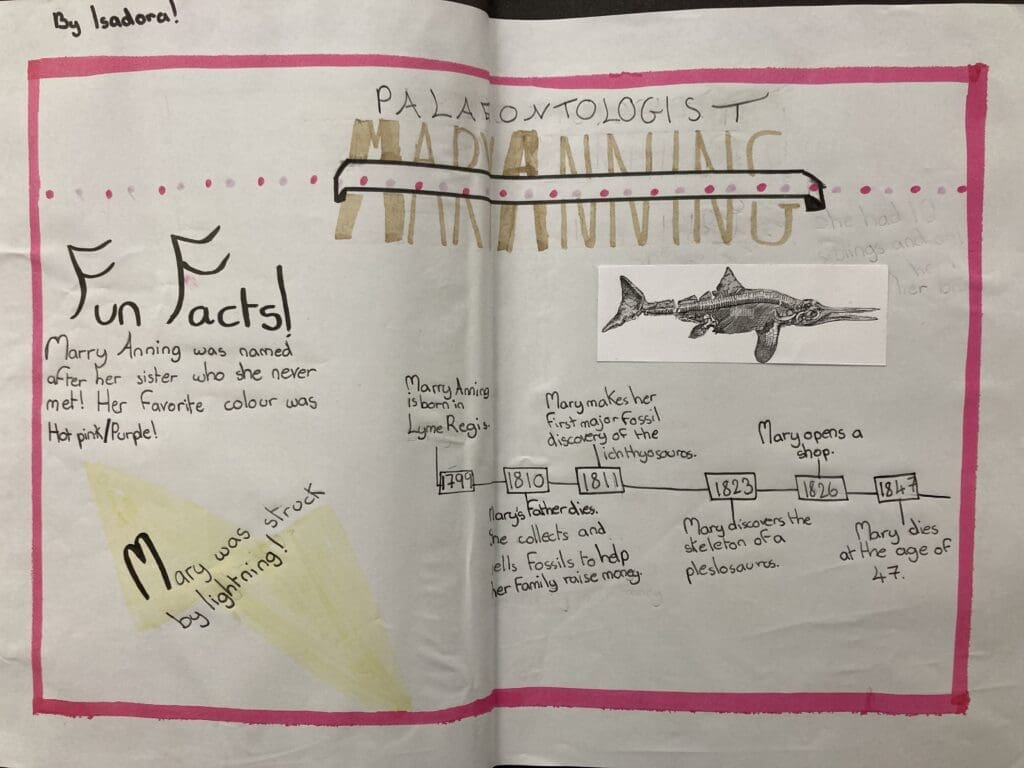 By Isadora!
PALAEONTOLOGIST
MARY ANNING
Fun Facts!
Marry Anning was named
after her sister who she never
met! Her Favorite colour was
Hot pink/Purple!
Mary was struck
by lightning!
Marry Anning
is born in
Lyme Regis.
1799
1810
Mary's Father dies.
She collects and
sells Fossils to help
her Family raise money.
Mary makes her
First major Fossil
discovery of the
ichthyosauros.
1811
1823
Mary discovers the
skeleton of a
pleslosauros.
Mary opens a
shop.
1826
1847
Mary dies
at the age of
47.
She had 12
siblings and